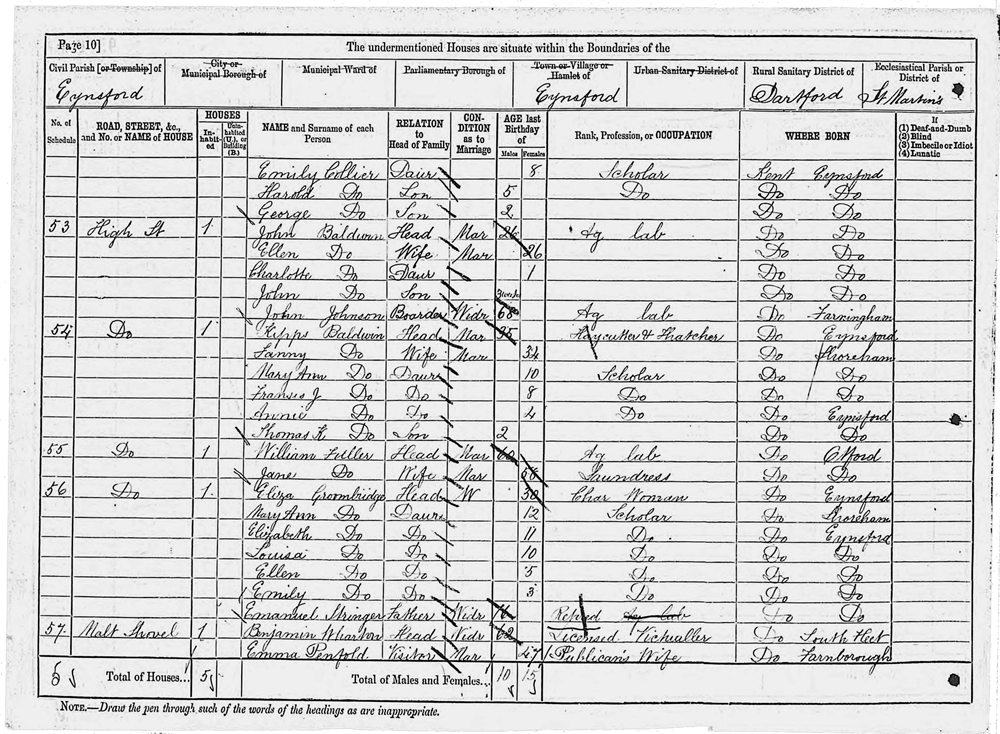 Page 10]
The undermentioned Houses are situate within the Boundaries of the
Civil Parish [or Township] of City or Municipal Borough of Municipal Ward of Parliamentary Borough of Town or Village or Hamlet of Urban Sanitary District of Rural Sanitary District of Ecclesiastical Parish or District of
Eynsford Eynsford Dartford St. Martin's
No. of Schedule ROAD, STREET, &c., and No. or NAME of HOUSE HOUSES Inhabited Uninhabited (U.), or Building (B.) NAME and Surname of each Person RELATION to Head of Family CONDITION as to Marriage AGE last Birthday of Males Females Rank, Profession, or OCCUPATION WHERE BORN If (1) Deaf-and-Dumb (2) Blind (3) Imbecile or Idiot (4) Lunatic
Emily Collier Daur 8 Scholar Kent Eynsford
Harold Do Son 5 Do Do Do
George Do Son 2 Do Do
53 High St 1 John Baldwin Head Mar 26 Ag lab Do Do
Ellen Do Wife Mar 26 Do Do
Charlotte Do Daur 1 Do Do
John Do Son Do Do
John Johnson Boarder Widr 68 Ag lab Do Farningham
54 Do 1 Kipps Baldwin Head Mar 35 Haycutter & Thatcher Do Eynsford
Fanny Do Wife Mar 34 Do Shoreham
Mary Ann Do Daur 10 Scholar Do Do
Francis J Do Do 8 Do Do Do
Annie Do Do 4 Do Do Eynsford
Thomas K Do Son 2 Do Do
55 Do 1 William Fuller Head Mar 60 Ag lab Do Otford
Jane Do Wife Mar 58 Laundress Do Do
56 Do 1 Eliza Groombridge Head W 30 Char Woman Do Eynsford
Mary Ann Do Daur 12 Scholar Do Shoreham
Elizabeth Do Do 11 Do Do Eynsford
Louisa Do Do 10 Do Do Do
Ellen Do Do 5 Do Do Do
Emily Do Do 3 Do Do Do
Emanuel Stringer Father Widr Retired Ag lab Do Do
57 Malt Shovel 1 Benjamin Wharton Head Widr 62 Licensed Victualler Do South Fleet
Emma Penfold Visitor Mar 47 Publican's Wife Do Farnborough
5 Total of Houses... 5 Total of Males and Females... 10 15
NOTE.—Draw the pen through such of the words of the headings as are inappropriate.